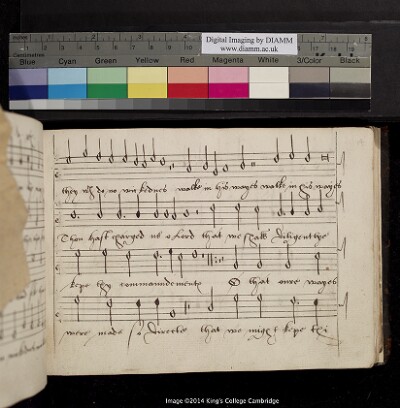 Digital Imaging by DIAMM
www.diamm.ac.uk
Blue Cyan Green Yellow Red Magenta White 3/Color Black
they wch do no wickednes walke in his wayes walke in his wayes
Thou hast charged us o lord that we shall diligentlye
kepe thy commaundements O that oure wayes
were made so directe that we might kepe thy
Image ©2014 King's College Cambridge